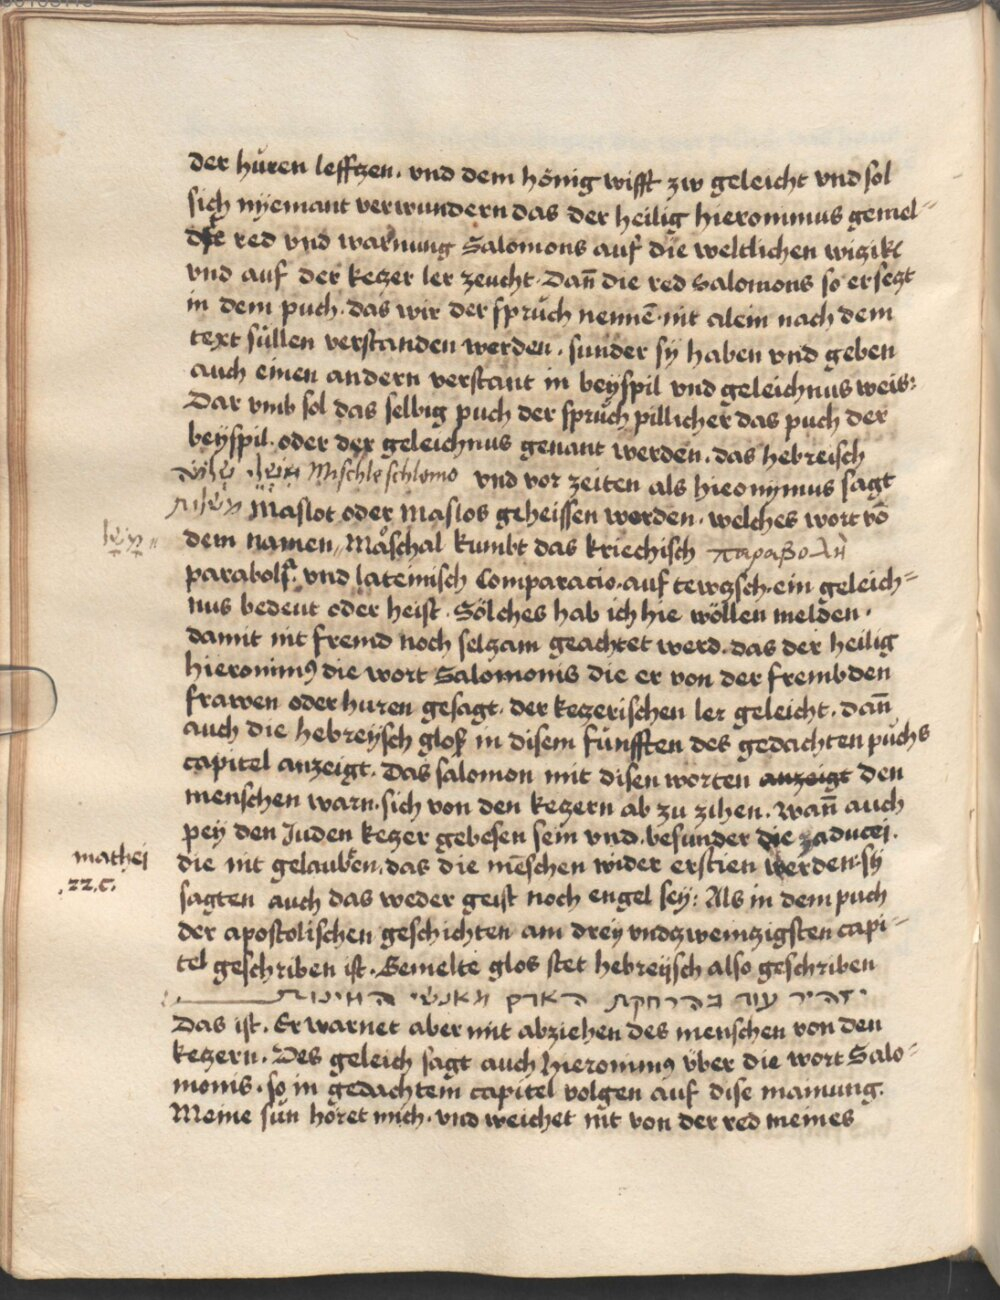 der hůren lefftzen. vnd dem hönig wifft zw geleicht vnd sol
sich nyemant verwundern das der heilig hieronimus gemel⸗
red vnd warnung Salomons auf die weltlichen
vnd auf der ketzer ler zeucht. Dañ die red Salomons so er setzt
in dem puch. das wir der sprůch nennē. nit alein nach dem
text sůllen verstanden werden. sunder sy haben vnd geben
auch einen andern verstant in beyspil vnd geleichnus weis:
Dar vmb sol das selbig puch der sprůch pillicher das puch der
beyspil. oder der geleichnus genant werden. das hebreisch
משלי שלמה Mischle schlomo vnd vor zeiten als hieronymus sagt
משלות Maslot oder Maslos geheissen worden. welches wort vō
משל
dem namen Maschal kumbt das kriechisch παραβολὴ
vnd lateinisch Comparacio. auf tewtzsch. ein geleich⸗
nus bedeut oder heist. Sölches hab ich hie wöllen melden.
damit nit fremd noch seltzam geachtet werd. das der heilig
hieronimꝰ die wort Salomonis die er von der frembden
frawen oder huren gesagt. der ketzerischen ler geleicht. dañ
auch die hebreysch glos in disem fünfften des gedachten půchs
capitel anzeigt. Das salomon mit disen worten anzeigt den
menschen warn. sich von den ketzern ab zu zihen. Wañ auch
pey den Juden ketzer gebesen sein vnd. besunder die zaducei.
mathei
22. c.
die nit gelauben. das die mēschen wider ersteen werden. sy
sagten auch das weder geist noch engel sey: Als in dem puch
der apostolischen geschichten am drey vndzweintzigsten capi⸗
tel geschriben ist. Gemelte glos stet hebreysch also geschriben
יזהיר עוד בהרחקת האדם מאנשי המינות
Das ist. Er warnet aber mit abziehen des menschen von den
ketzern. Des geleich sagt auch hieronimꝰ über die wort Salo⸗
monis. so in gedachtem capitel volgen auf dise mainung.
Meine sün höret mich. vnd weichet nit von der red meines